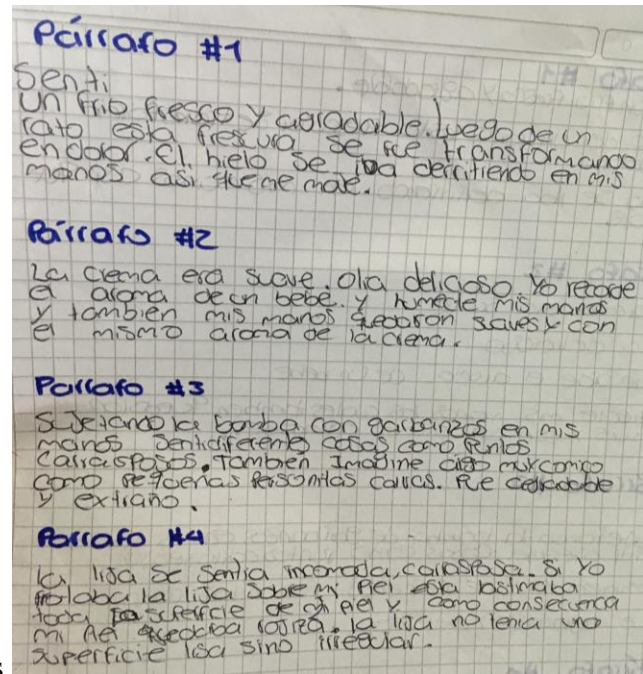 Párrafo #1
Senti
Un frio fresco y agradable. Luego de un
rato esta frescura se fue transformando
en dolor. El hielo se iba derritiendo en mis
manos asi que me moje.
Párrafo #2
La crema era suave. Olia delicioso. Yo recorde
el aroma de un bebe. y humecte mis manos
y tambien mis manos quedaron suaves y con
el mismo aroma de la crema.
Parrafo #3
Sujetando la bomba con garbanzos en mis
manos senti diferentes cosas como puntos
carrasposos. Tambien Imagine algo muy comico
como pequeñas personitas calvas. Fue agradable
y extraño.
Parrafo #4
la lija se sentia incomoda, carrasposa. Si yo
frotaba la lija sobre mi piel esta lastimaba
toda la superficie de mi piel y como consecuencia
mi piel quedaba rojiza. la lija no tenia una
superficie lisa sino irregular.